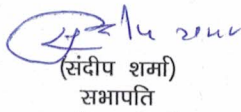 (संदीप शर्मा)
सभापति